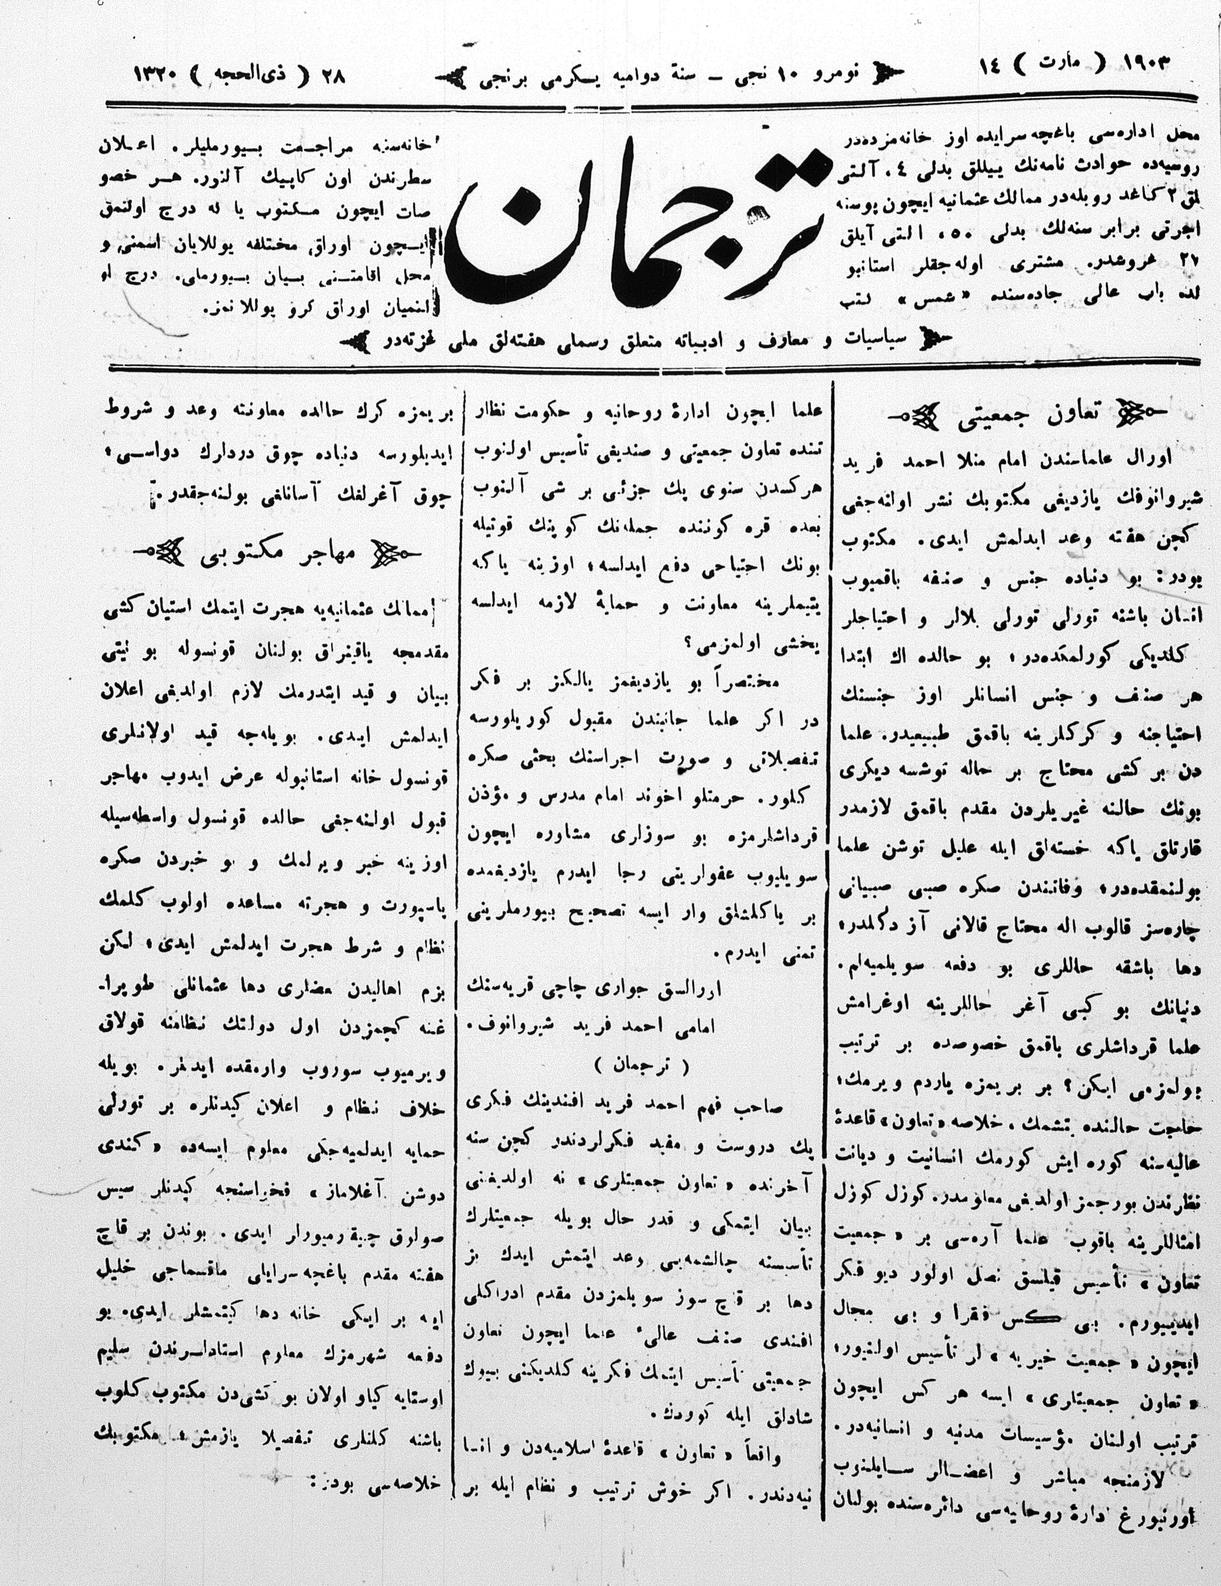 ١٩٠٣ ( مارت ) ١٤
نومرو ١٠ نجى – سنهٔ دواميه يكرمى برنجى
٢٨ ( ذى‌الحجه ) ١٣٢٠
محل اداره‌سى باغچه‌سرايده اوز خانه‌مزده‌در
روسيه‌ده حوادث نامه‌نك ييللق بدلى ٤، آلتى
لق ٢ كاغد روبله‌در ممالك عثمانيه ايچون پوسته
اجرتى برابر سنه‌لك بدلى ٥٠، التى آيلق
٢٧ غروشدر. مشترى اوله‌جقلر استانبو
لده باب عالى جاده‌سنده «شمس» كتب
ترجمان
خانه‌سنه مراجعت بيورمليلر. اعلان
سطرندن اون كاپيك آلنور. هر خصو
صات ايچون مكتوب يا له درج اولنمق
ايچون اوراق مختلفه يوللايان اسمنى و
محل اقامتنى بيان بيورملى. درج او
لنميان اوراق كرو يوللانمز.
سياسيات و معارف و ادبياته متعلق رسملى هفته‌لق ملى غزته‌در
تعاون جمعيتى
اورال علماسندن امام منلا احمد فريد
شيروانوفك يازديغى مكتوبك نشر اولنه‌جغى
كچن هفته وعد ايدلمش ايدى. مكتوب
بودر: بو دنياده جنس و صنفه باقميوب
انسان باشنه تورلى تورلى بلالر و احتياجلر
كلديكى كورلمكده‌در؛ بو حالده اك ابتدا
هر صنف و جنس انسانلر اوز جنسنك
احتياجنه و كركلرينه باقمق طبيعيدر. علما
دن بر كشى محتاج بر حاله توشسه ديكرى
بونك حالنه غيريلردن مقدم باقمق لازمدر
قارتلق ياكه خسته‌لق ايله عليل توشن علما
بولنمقده‌در؛ وفاتندن صكره صبى صبيانى
چاره‌سز قالوب اله محتاج قالانى آز دكلدر؛
دها باشقه حاللرى بو دفعه سويلميه‌لم.
دنيانك بو كبى آغر حاللرينه اوغرامش
علما قرداشلرى باقمق خصوصده بر ترتيب
بولمزمى ايكن؟ بر بريمزه ياردم ويرمك؛
حاجت حالنده يتشمك، خلاصه «تعاون» قاعدهٔ
عاليه‌سنه كوره ايش كورمك انسانيت و ديانت
نظرندن بورجمز اولديغى معلومدر. كوزل كوزل
امثاللرينه باقوب علما آره‌سى بر «جمعيت
تعاون» تأسيس قيلسق نصل اولور ديو فكر
ايديبورم. بى كس فقرا و بى مجال
ايچون «جمعيت خيريه» لر تأسيس اولنيور؛
«تعاون جمعيتلرى» ايسه هر كس ايچون
ترتيب اولنان مؤسسات مدنيه و انسانيه‌در.
لازمنجه مباشر و اعضالر سايلنوب
اورنبورغ ادارهٔ روحانيه‌سى دائره‌سنده بولنان
علما ايچون ادارهٔ روحانيه و حكومت نظار
تنده تعاون جمعيتى و صنديغى تأسيس اولنوب
هركسدن سنوى پك جزئى بر شى آلنوب
بعده قره كوننده جمله‌نك كوپنك قوتيله
بونك احتياجى دفع ايدلسه؛ اوزينه ياكه
يتيملرينه معاونت و حمايهٔ لازمه ايدلسه
يخشى اولمزمى؟
مختصراً بو يازديغمز يالكيز بر فكر
در اكر علما جانبندن مقبول كوريلورسه
تفصيلاتى و صورت اجراسنك بحثى صكره
كلور. حرمتلو اخوند امام مدرس و مؤذن
قرداشلرمزه بو سوزلرى مشاوره ايچون
سويليوب عفولرينى رجا ايدرم يازديغمده
بر ياكلشلق وار ايسه تصحيح بيورملرينى
تمنى ايدرم.
اورالسق جوارى چاچى قريه‌سنك
امامى احمد فريد شيروانوف.
( ترجمان )
صاحب فهم احمد فريد افندينك فكرى
پك دروست و مفيد فكرلردندر كچن سنه
آخرنده «تعاون جمعيتلرى» نه اولديغنى
بيان ايتمكى و قدر حال بويله جمعيتلرك
تأسسنه چالشمه‌يى وعد ايتمش ايدك بز
دها بر قاچ سوز سويلمزدن مقدم ادراكلى
افندى صنف عالىٔ علما ايچون تعاون
جمعيتى تأسيس ايتمك فكرينه كلديكنى بيوك
شادلق ايله كوردك.
واقعاً «تعاون» قاعدهٔ اسلاميه‌دن و انسا
نيه‌دندر. اكر خوش ترتيب و نظام ايله بر
بريمزه كرك حالده معاونته وعد و شروط
ايديلورسه دنياده چوق دردلرك دواسى؛
چوق آغرلغك آسانلغى بولنه‌جقدر.
مهاجر مكتوبى
ممالك عثمانيه‌يه هجرت ايتمك استيان كشى
مقدمجه ياقينراق بولنان قونسوله بو نيتى
بيان و قيد ايتدرمك لازم اولديغى اعلان
ايدلمش ايدى. بويله‌جه قيد اولانلرى
قونسول خانه استانبوله عرض ايدوب مهاجر
قبول اولنه‌جغى حالده قونسول واسطه‌سيله
اوزينه خبر ويرلمك و بو خبردن صكره
پاسپورت و هجرته مساعده اولوب كلمك
نظام و شرط هجرت ايدلمش ايدى؛ لكن
بزم اهاليدن مضارى دها عثمانلى طوپرا
غنه كچمزدن اول دولتك نظامنه قولاق
ويرميوب سوروب وارمقده ايديلر. بويله
خلاف نظام و اعلان كيدنلره بر تورلى
حمايه ايدلميه‌جكى معلوم ايسه‌ده «كندى
دوشن آغلاماز» فحواسنجه كيدنلر سيس
صولوق چيقرميورلر ايدى. بوندن بر قاچ
هفته مقدم باغچه‌سرايلى ماقسماجى خليل
ايله بر ايكى خانه دها كيتمشلر ايدى. بو
دفعه شهرمزك معلوم استادلرندن سليم
اوستايه كياو اولان بو كشى‌دن مكتوب كلوب
باشنه كلنلرى تفصيلا يازمش؛ مكتوبك
خلاصه‌سى بودر: